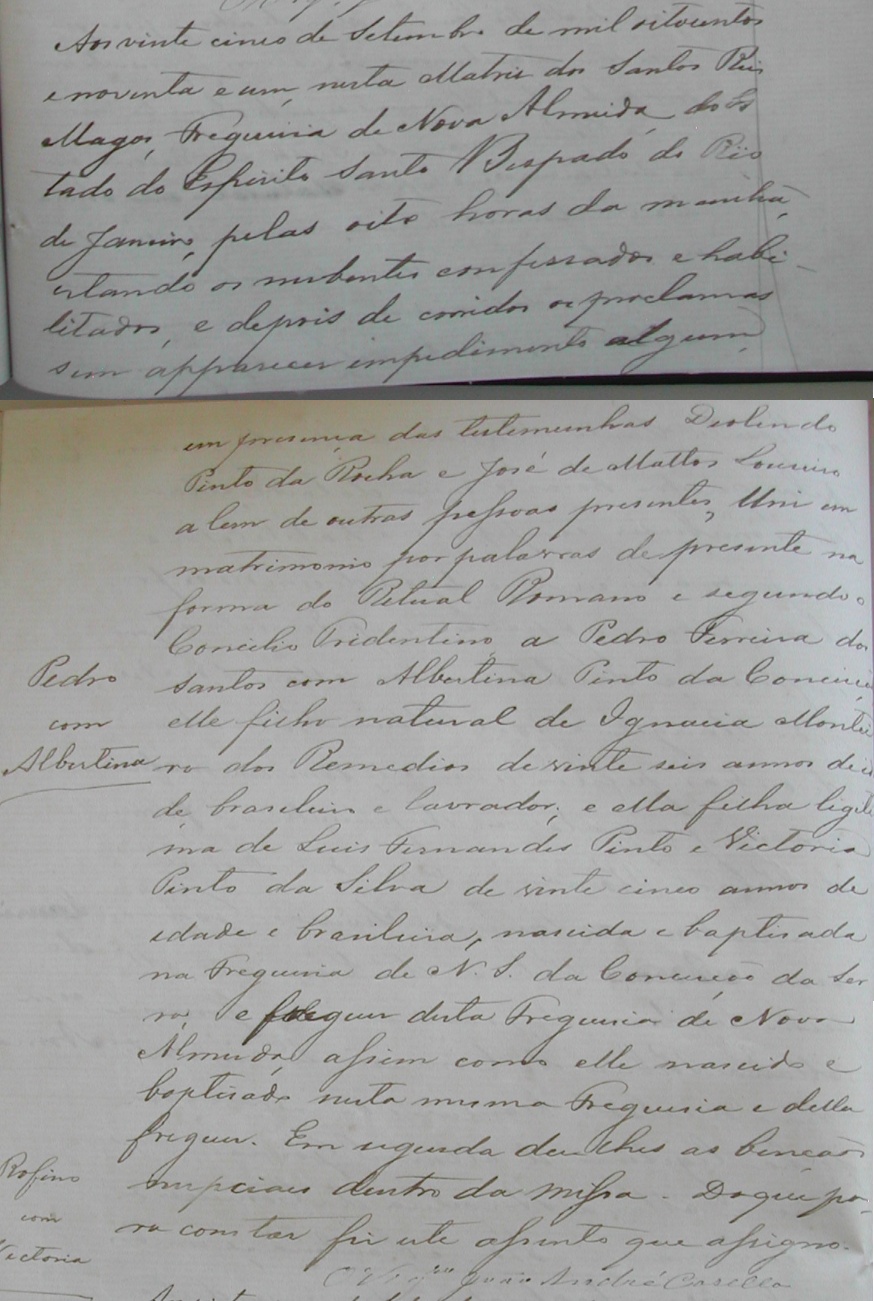 Aos vinte cinco de Setembro de mil oitocentos
e noventa e um, nesta Matriz dos Santos Reis
Magos, Freguesia de Nova Almeida, do Es
tado do Espirito Santo Bispado do Rio
de Janeiro, pelas oito horas da manhã,
estando os nubentes confessados e habi-
litados, e depois de corridos os proclamas
sem apparecer impedimento algum,
em presença das testemunhas Deolindo
Pinto da Rocha e José de Mattos Loureiro
alem de outras pessoas presentes, Uni em
matrimonio por palavras de presente na
forma do Ritual Romano e segundo o
Concilio Tridentino a Pedro Ferreira dos
Santos com Albertina Pinto da Conceiçã
Pedro
com
Albertina
elle filho natural de Ignacia Montei
ro dos Remedios de vinte seis annos de i
de brasileiro e lavrador; e ella filha legiti
ma de Luis Fernandes Pinto e Victoria
Pinto da Silva de vinte cinco annos de
idade e brasileira, nascida e baptisada
na Freguesia de N. S. da Conceição da Ser
ra, e freguer desta Freguesia de Nova
Almeida, assim como elle nascido e
baptisado nesta mesma Freguesia e della
freguer. Em seguida dei lhes as bençãos
nupciaes dentro da missa. Do que pa-
ra constar fiz este assento que assigno.
Rofino
com
Victoria
O Vigrº João André Casella